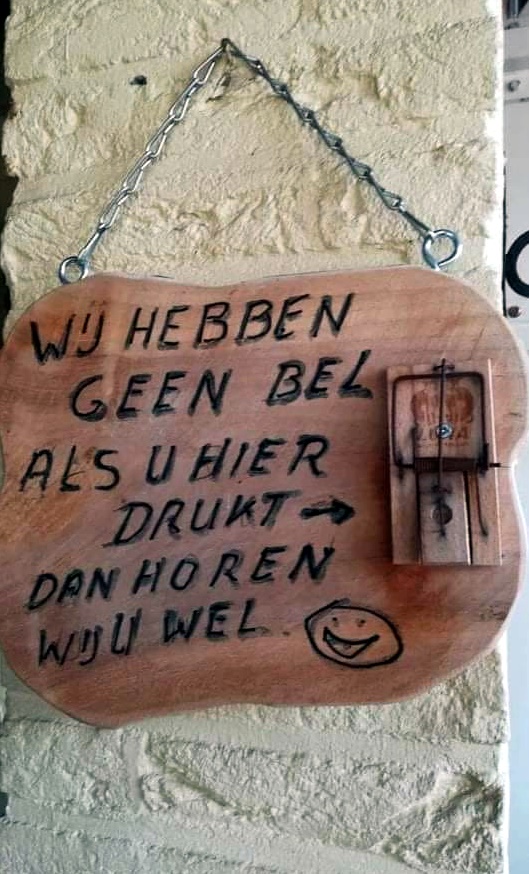 WIJ HEBBEN
GEEN BEL
ALS U HIER
DRUKT →
DAN HOREN
WIJ U WEL.